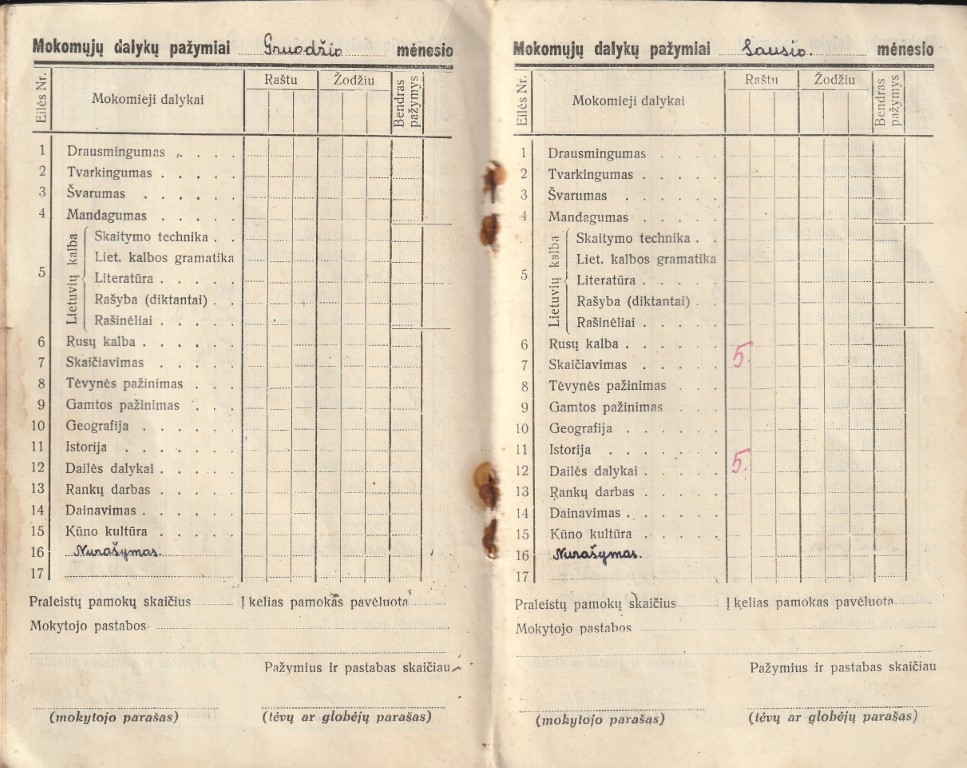 Mokomųjų dalykų pažymiai Gruodžio mėnesio
Eilės Nr.
Mokomieji dalykai
Raštu
Žodžiu
Bendras pažymys
1 Drausmingumas
2 Tvarkingumas
3 Švarumas
4 Mandagumas
5 Lietuvių kalba
Skaitymo technika
Liet. kalbos gramatika
Literatūra
Rašyba (diktantai)
Rašinėliai
6 Rusų kalba
7 Skaičiavimas
8 Tėvynės pažinimas
9 Gamtos pažinimas
10 Geografija
11 Istorija
12 Dailės dalykai
13 Rankų darbas
14 Dainavimas
15 Kūno kultūra
16 Nurašymas.
17
Praleistų pamokų skaičius Į kelias pamokas pavėluota
Mokytojo pastabos
Pažymius ir pastabas skaičiau
(mokytojo parašas) (tėvų ar globėjų parašas)
Mokomųjų dalykų pažymiai Sausio. mėnesio
Eilės Nr.
Mokomieji dalykai
Raštu
Žodžiu
Bendras pažymys
1 Drausmingumas
2 Tvarkingumas
3 Švarumas
4 Mandagumas
5 Lietuvių kalba
Skaitymo technika
Liet. kalbos gramatika
Literatūra
Rašyba (diktantai)
Rašinėliai
6 Rusų kalba
7 Skaičiavimas 5.
8 Tėvynės pažinimas
9 Gamtos pažinimas
10 Geografija
11 Istorija
12 Dailės dalykai 5.
13 Rankų darbas
14 Dainavimas
15 Kūno kultūra
16 Nurašymas.
17
Praleistų pamokų skaičius Į kelias pamokas pavėluota
Mokytojo pastabos
Pažymius ir pastabas skaičiau
(mokytojo parašas) (tėvų ar globėjų parašas)